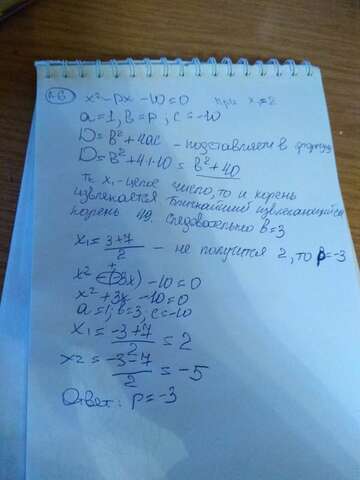 №6 x² - px - 10 = 0 при x₁ = 2
a = 1; b = p; c = -10
D = b² + 4ac - подставляем в формулу
D = b² + 4·1·10 = b² + 40
Тк x₁ - целое число, то и корень
извлекается ближайший извлекающийся
корень 49. Следовательно b = 3
x₁ = (3+7)/2 - не получится 2, то p = -3
x² + (3x) - 10 = 0
x² + 3x - 10 = 0
a = 1; b = 3, c = -10
x₁ = (-3+7)/2 = 2
x₂ = (-3-7)/2 = -5
Ответ: p = -3